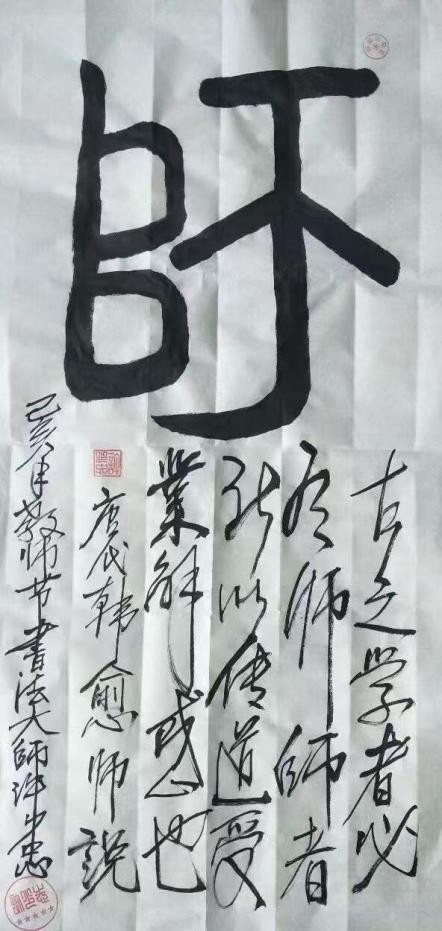 師
古之学者必
有师师者
所以传道受
業解惑也
唐代韩愈师説
己亥年教师节書法大師许忠